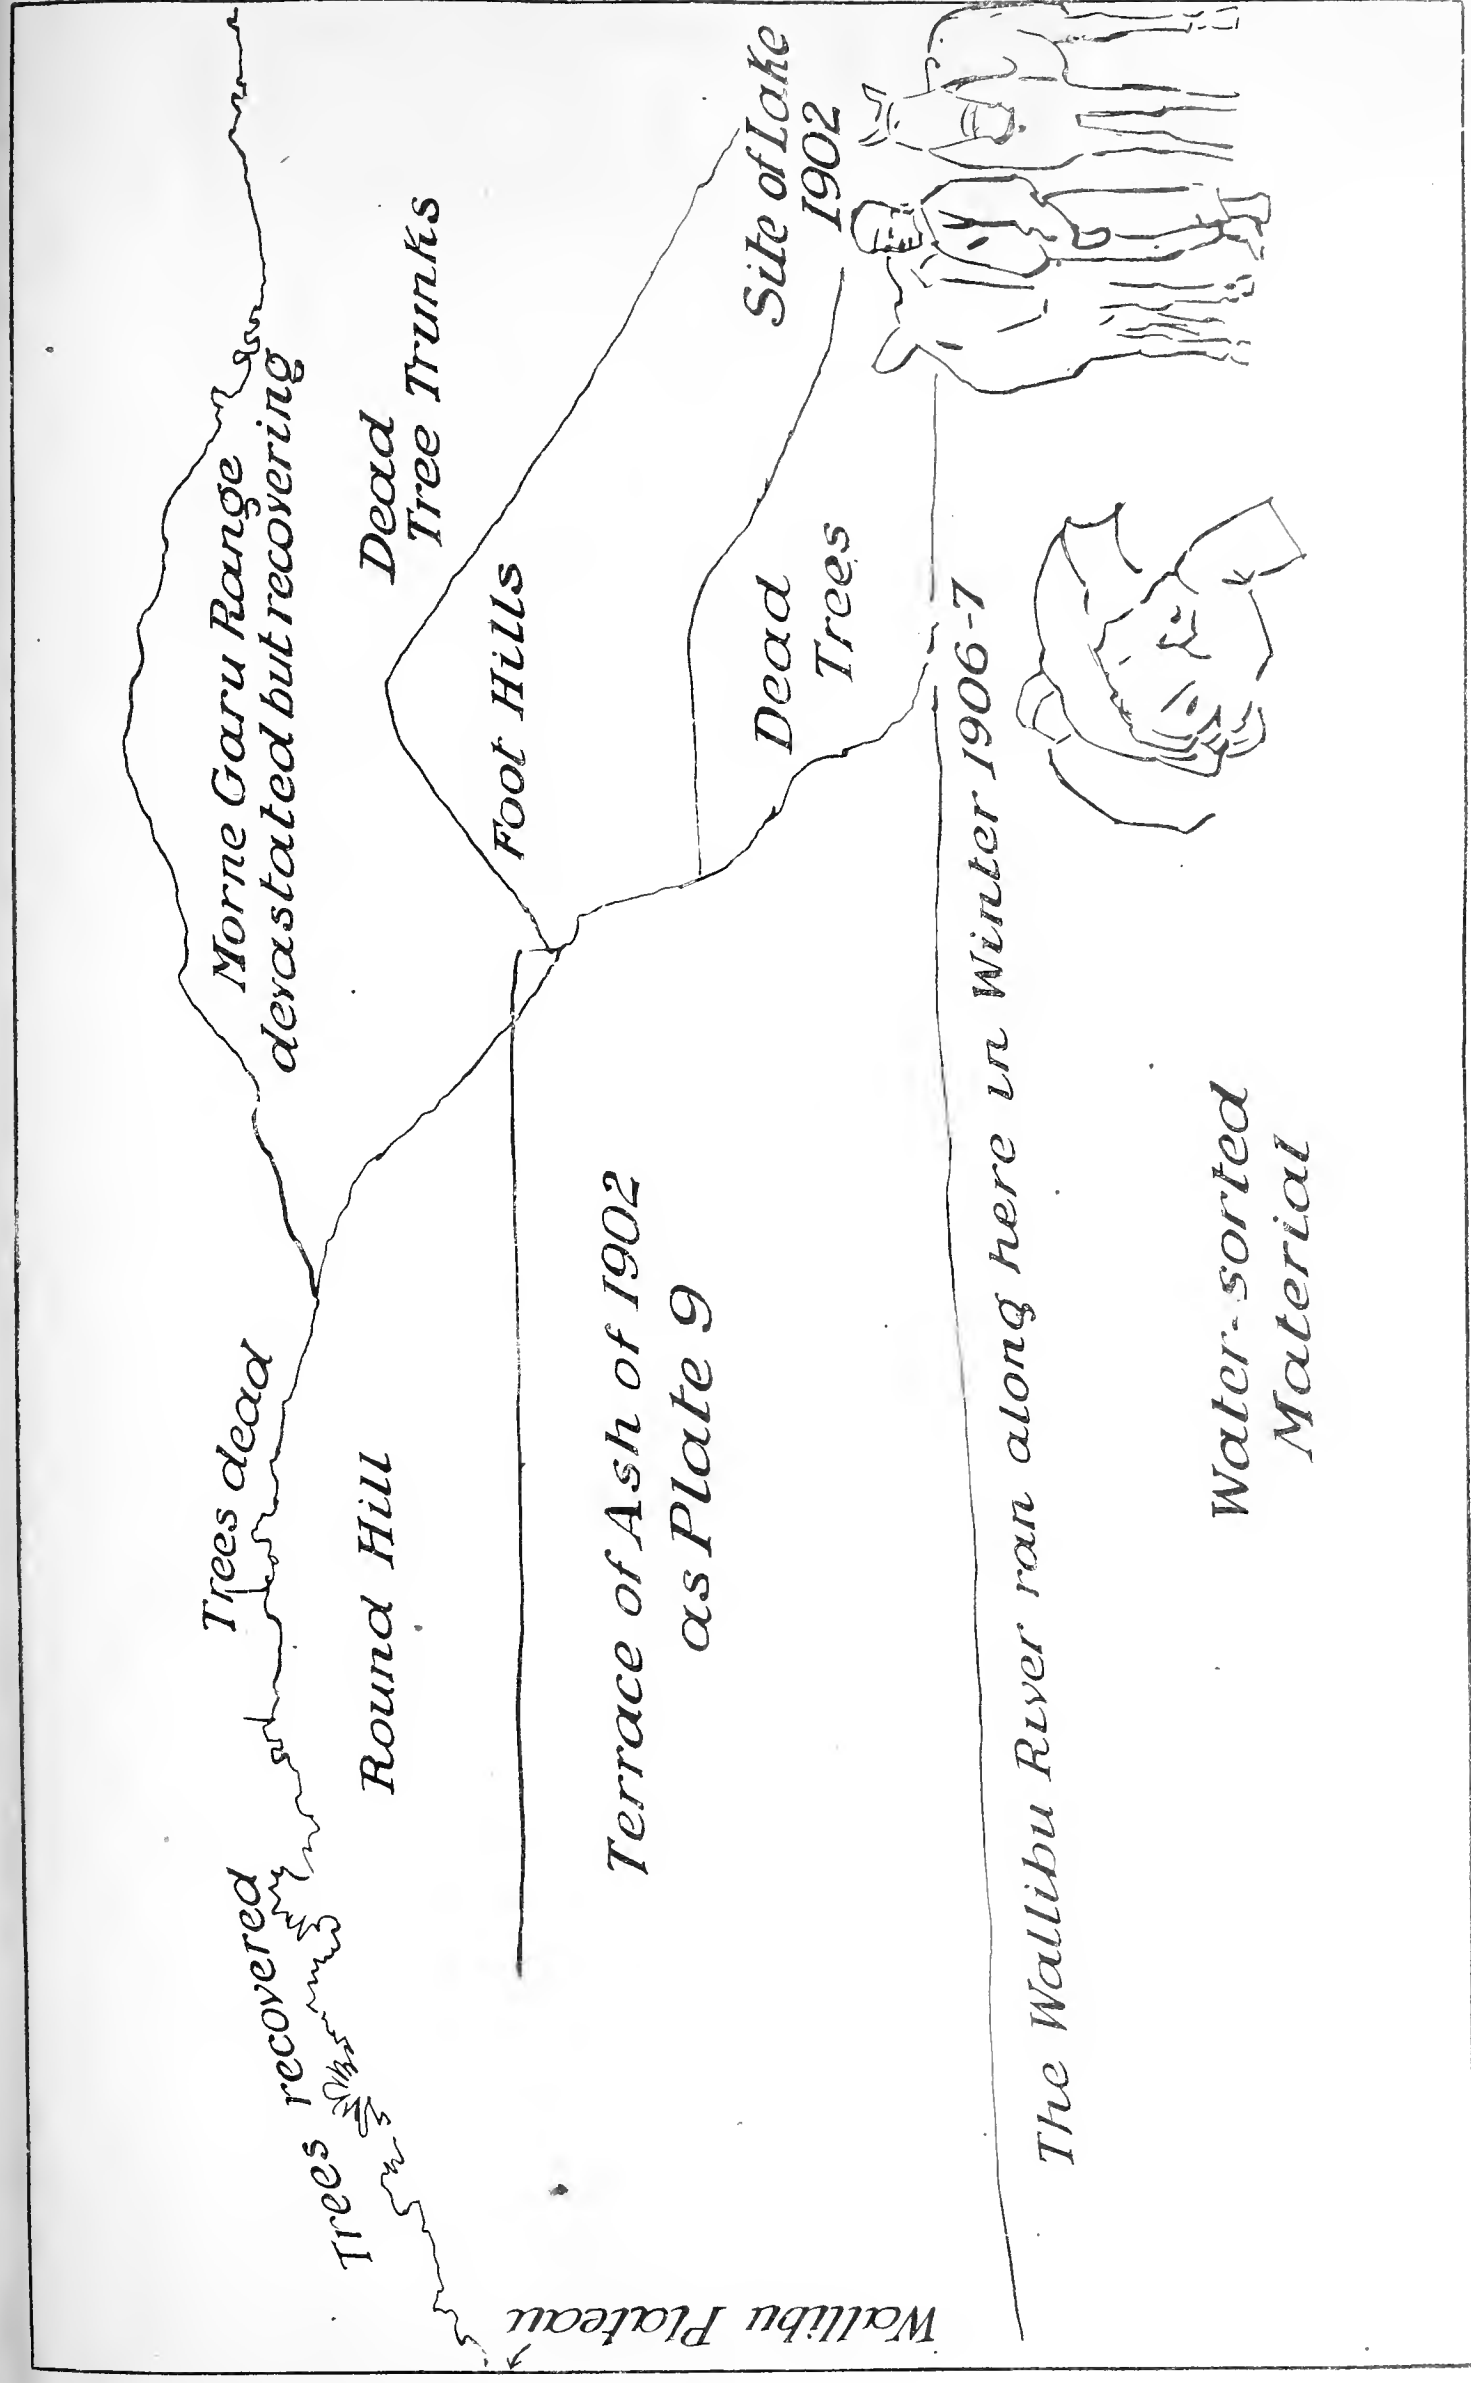 Trees recovered
Trees dead
Morne Garu Range
devastated but recovering
Round Hill
Dead
Tree Trunks
Foot Hills
Terrace of Ash of 1902
as Plate 9
Site of Lake
1902
Dead
Trees
Wallibu Plateau
The Wallibu River ran along here in Winter 1906-7
Water-sorted
Material